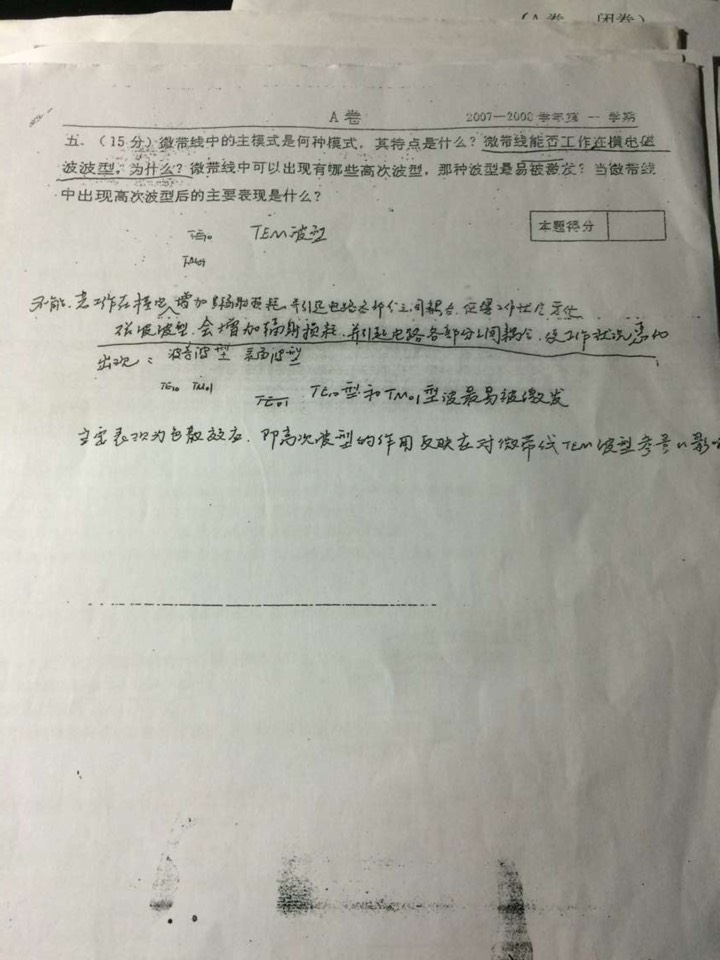 (A卷 闭卷)
A卷 2007—2008学年第一学期
五．（15分）微带线中的主模式是何种模式，其特点是什么？微带线能否工作在横电磁
波波型，为什么？微带线中可以出现有哪些高次波型，那种波型最易被激发？当微带线
中出现高次波型后的主要表现是什么？
本题得分
TE10 TEM波型
TM01
不能.若工作在横电 增加辐射损耗,并引起电路各部分之间耦合,使得工作状况
磁波波型.会增加辐射损耗.并引起电路各部分之间耦合,使工作状况恶化
出现：波导波型 表面波型
TE10 TM01 TE01 TE10型和TM01型波最易被激发
主要表现为色散效应.即高次波型的作用反映在对微带线TEM波型参量的影响